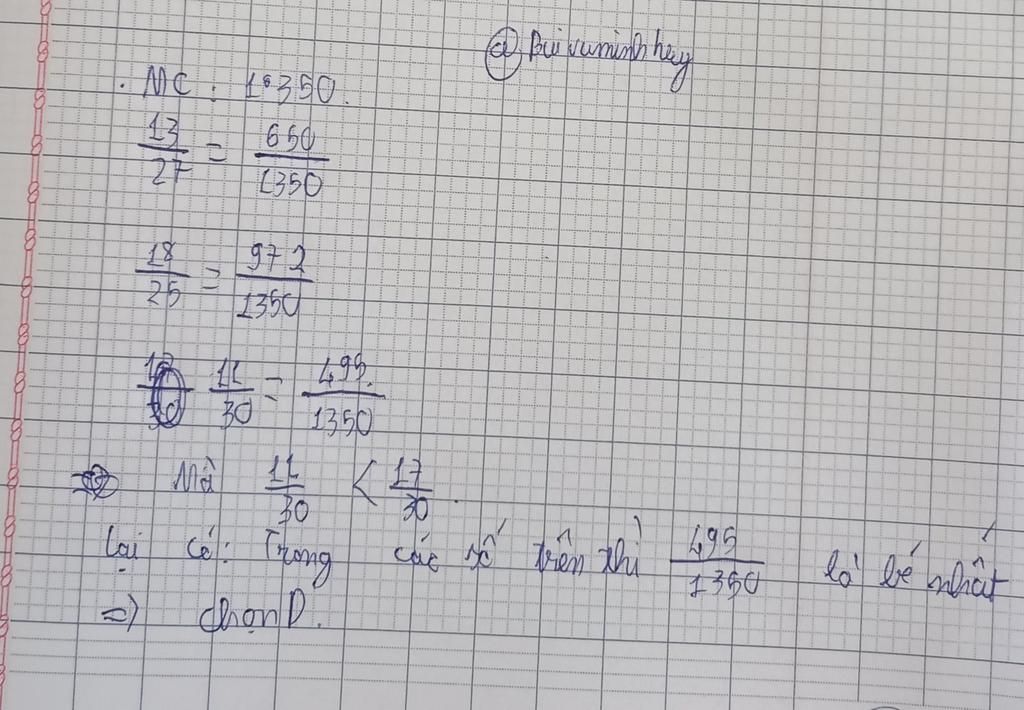 @ Buivuminhhay
. MC : 1350.
13/27 = 650/1350
18/25 = 972/1350
11/30 = 495/1350
Mà 11/30 < 17/30.
Lại có: Trong các số trên thì 495/1350 là bé nhất
=> chọn D.